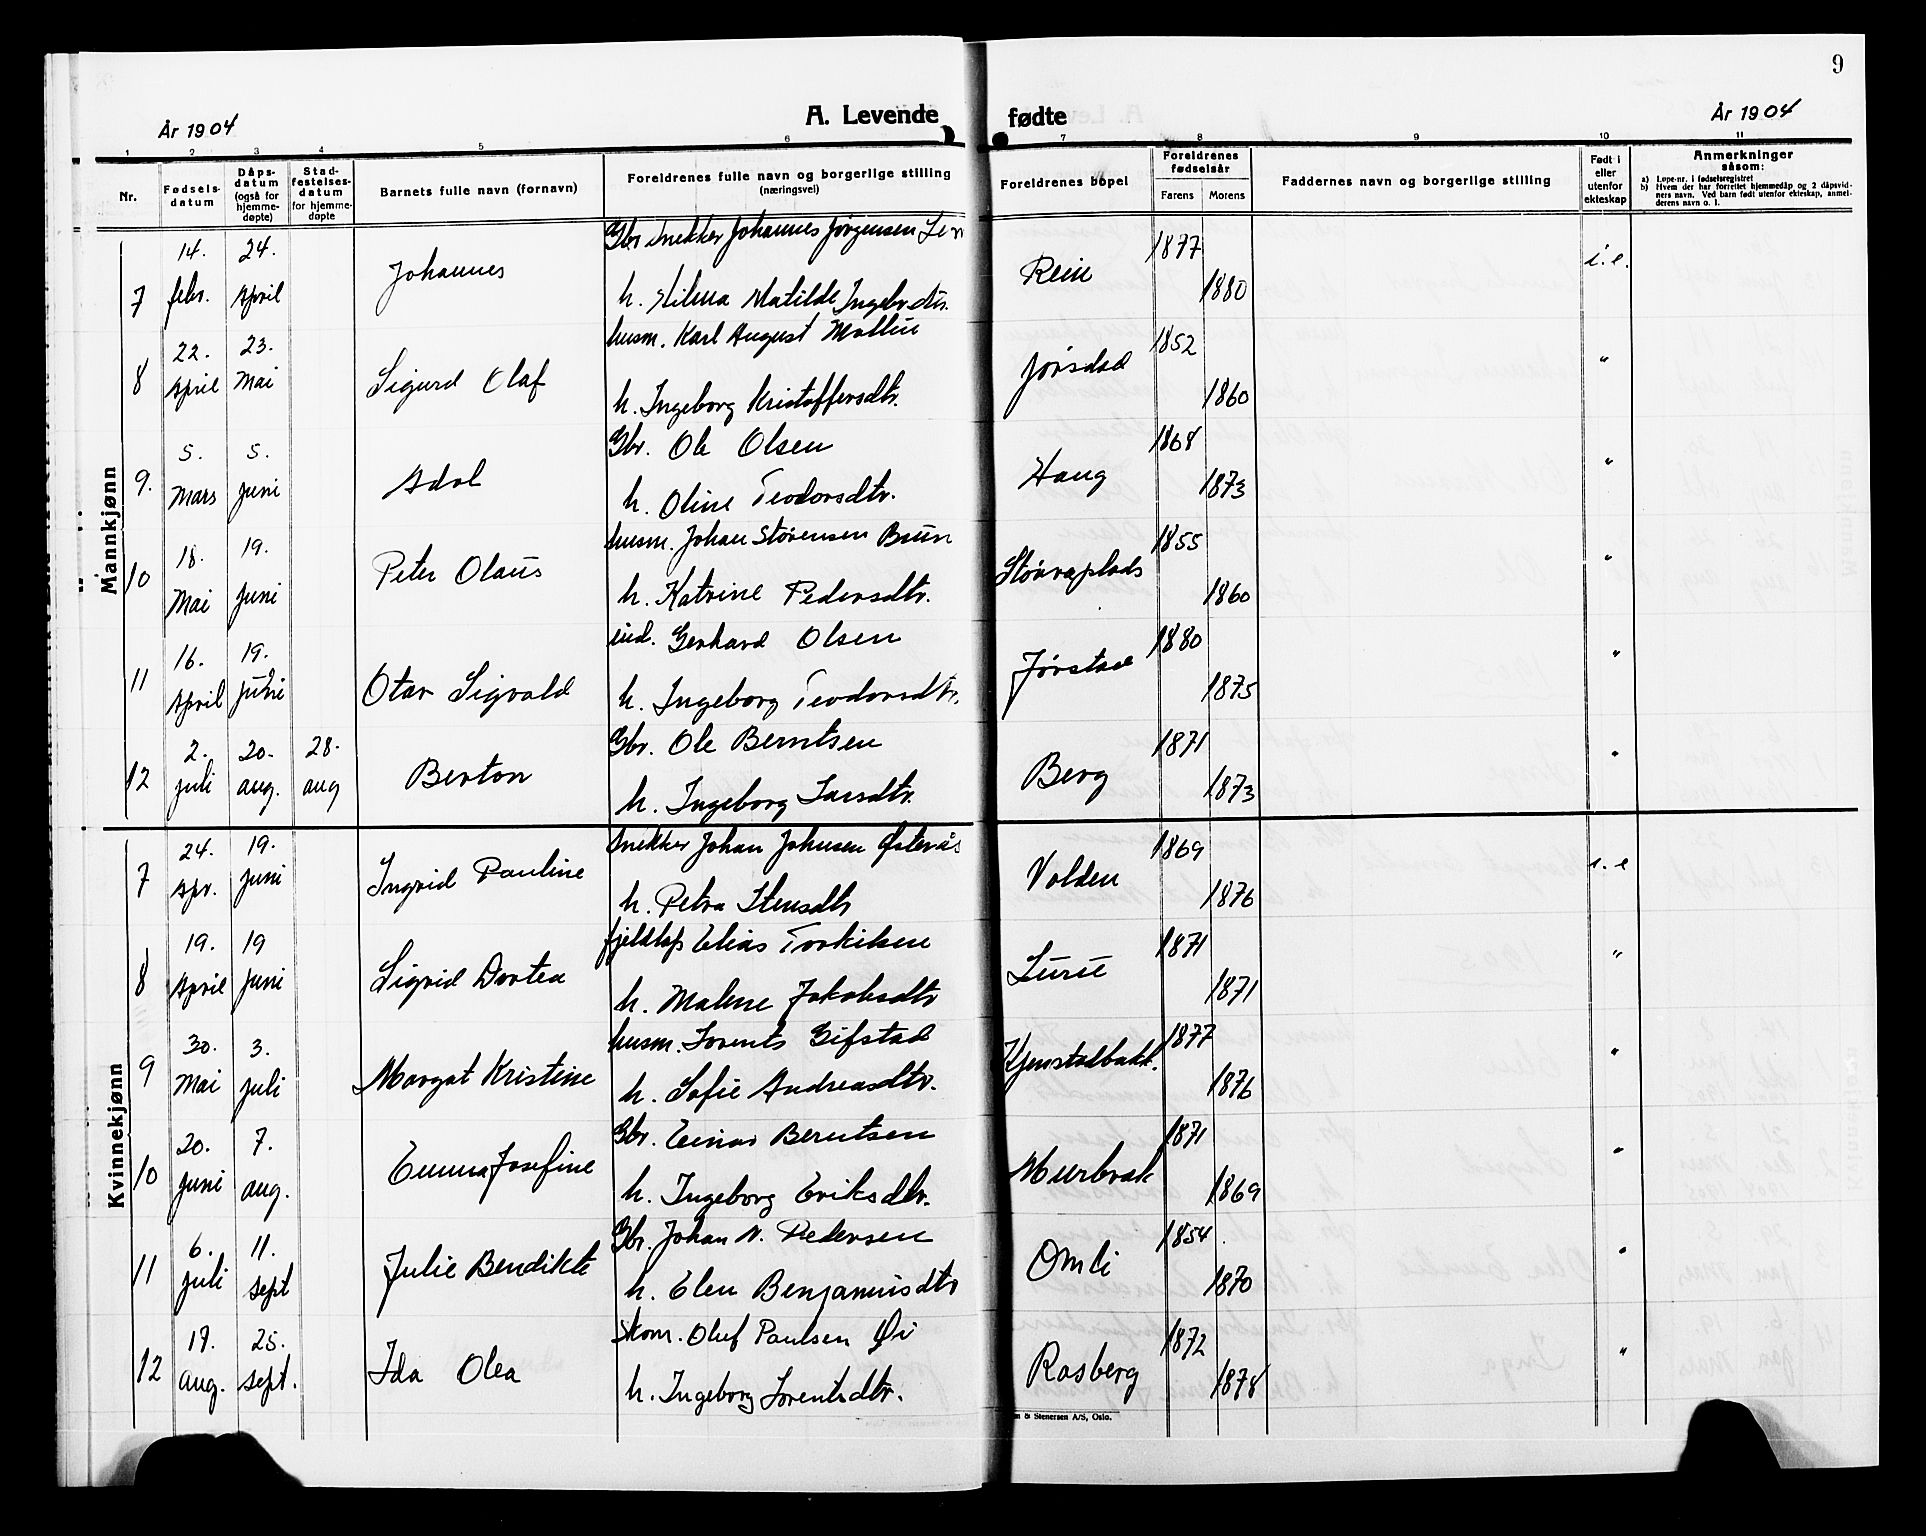 9
År 1904
A. Levende fødte
År 1904
1 2 3 4 5 6 7 8 9 10 11
Nr.
Fødsels-
datum
Dåps-
datum
(også for
hjemme-
døpte)
Stad-
festelses-
datum
for hjemme-
døpte
Barnets fulle navn (fornavn)
Foreldrenes fulle navn og borgerlige stilling
(næringsvei)
Foreldrenes bopel
Foreldrenes
fødselsår
Farens Morens
Faddernes navn og borgerlige stilling
Født i
eller
utenfor
ekteskap
Anmerkninger
såsom:
a) Løpe-nr. i fødselsregistret
b) Hvem der har forrettet hjemmedåp og 2 dåpsvid-
ners navn. Ved barn født utenfor ekteskap, anmel-
derens navn o. l.
Mannkjønn
7 14. febr. 24. April Johannes Gbr snekker Johannes Jørgensen Rein 1877 i.e.
h. Hilma Matilde Ingebr.dtr. 1880
8 22. April 23. Mai Sigurd Olaf husm. Karl August Mollin 1852 "
h. Ingeborg Kristoffersdtr. 1860
9. 5. Mars 5. Juni Adol Gbr. Ole Olsen Haug 1868 "
h. Oline Teodorsdtr. 1873
10 18. Mai 19. Juni Peter Olaus husm. Johan Størensen Brun Støvraplads 1855 "
h. Katrine Pedersdtr. 1860
11 16. April 19. Juni Otar Sigvald ind. Gerhard Olsen Jørstad 1880 "
h. Ingeborg Teodorsdtr. 1875
12 2. juli 20. aug. 28. aug Berton Gbr. Ole Berntsen Berg 1871 "
h. Ingeborg Larsdtr. 1873
Kvinnekjønn
7 24. Apr. 19. Juni Ingrid Pauline Snekker Johan Johnsen Østerås Volden 1869 i.e
h. Petra Stensdtr 1876
8 19. April 19 Juni Sigrid Dortea fjeldlap Elias Torkilsen Lurü 1871 "
h. Malene Jakobsdtr 1871
9 30. Mai 3. Juli Margat Kristine husm. Lorents Gifstad Kjenstadbakk. 1877 "
h. Sofie Andreasdtr. 1876
10 20. Juni 7. aug. Emma Josefine Gbr. Einar Berntsen Murbræk 1871 "
h. Ingeborg Eriksdtr. 1869
11 6. Juli 11. Sept Julie Bendikte Gbr. Johan N. Pedersen Omli 1854 "
h. Elen Benjaminsdtr 1870
12 17. aug. 25. Sept. Ida Olea Skom. Oluf Paulsen Øi Rosberg 1872 "
h. Ingeborg Lorentsdtr. 1878
& Stenersen A/S, Oslo.